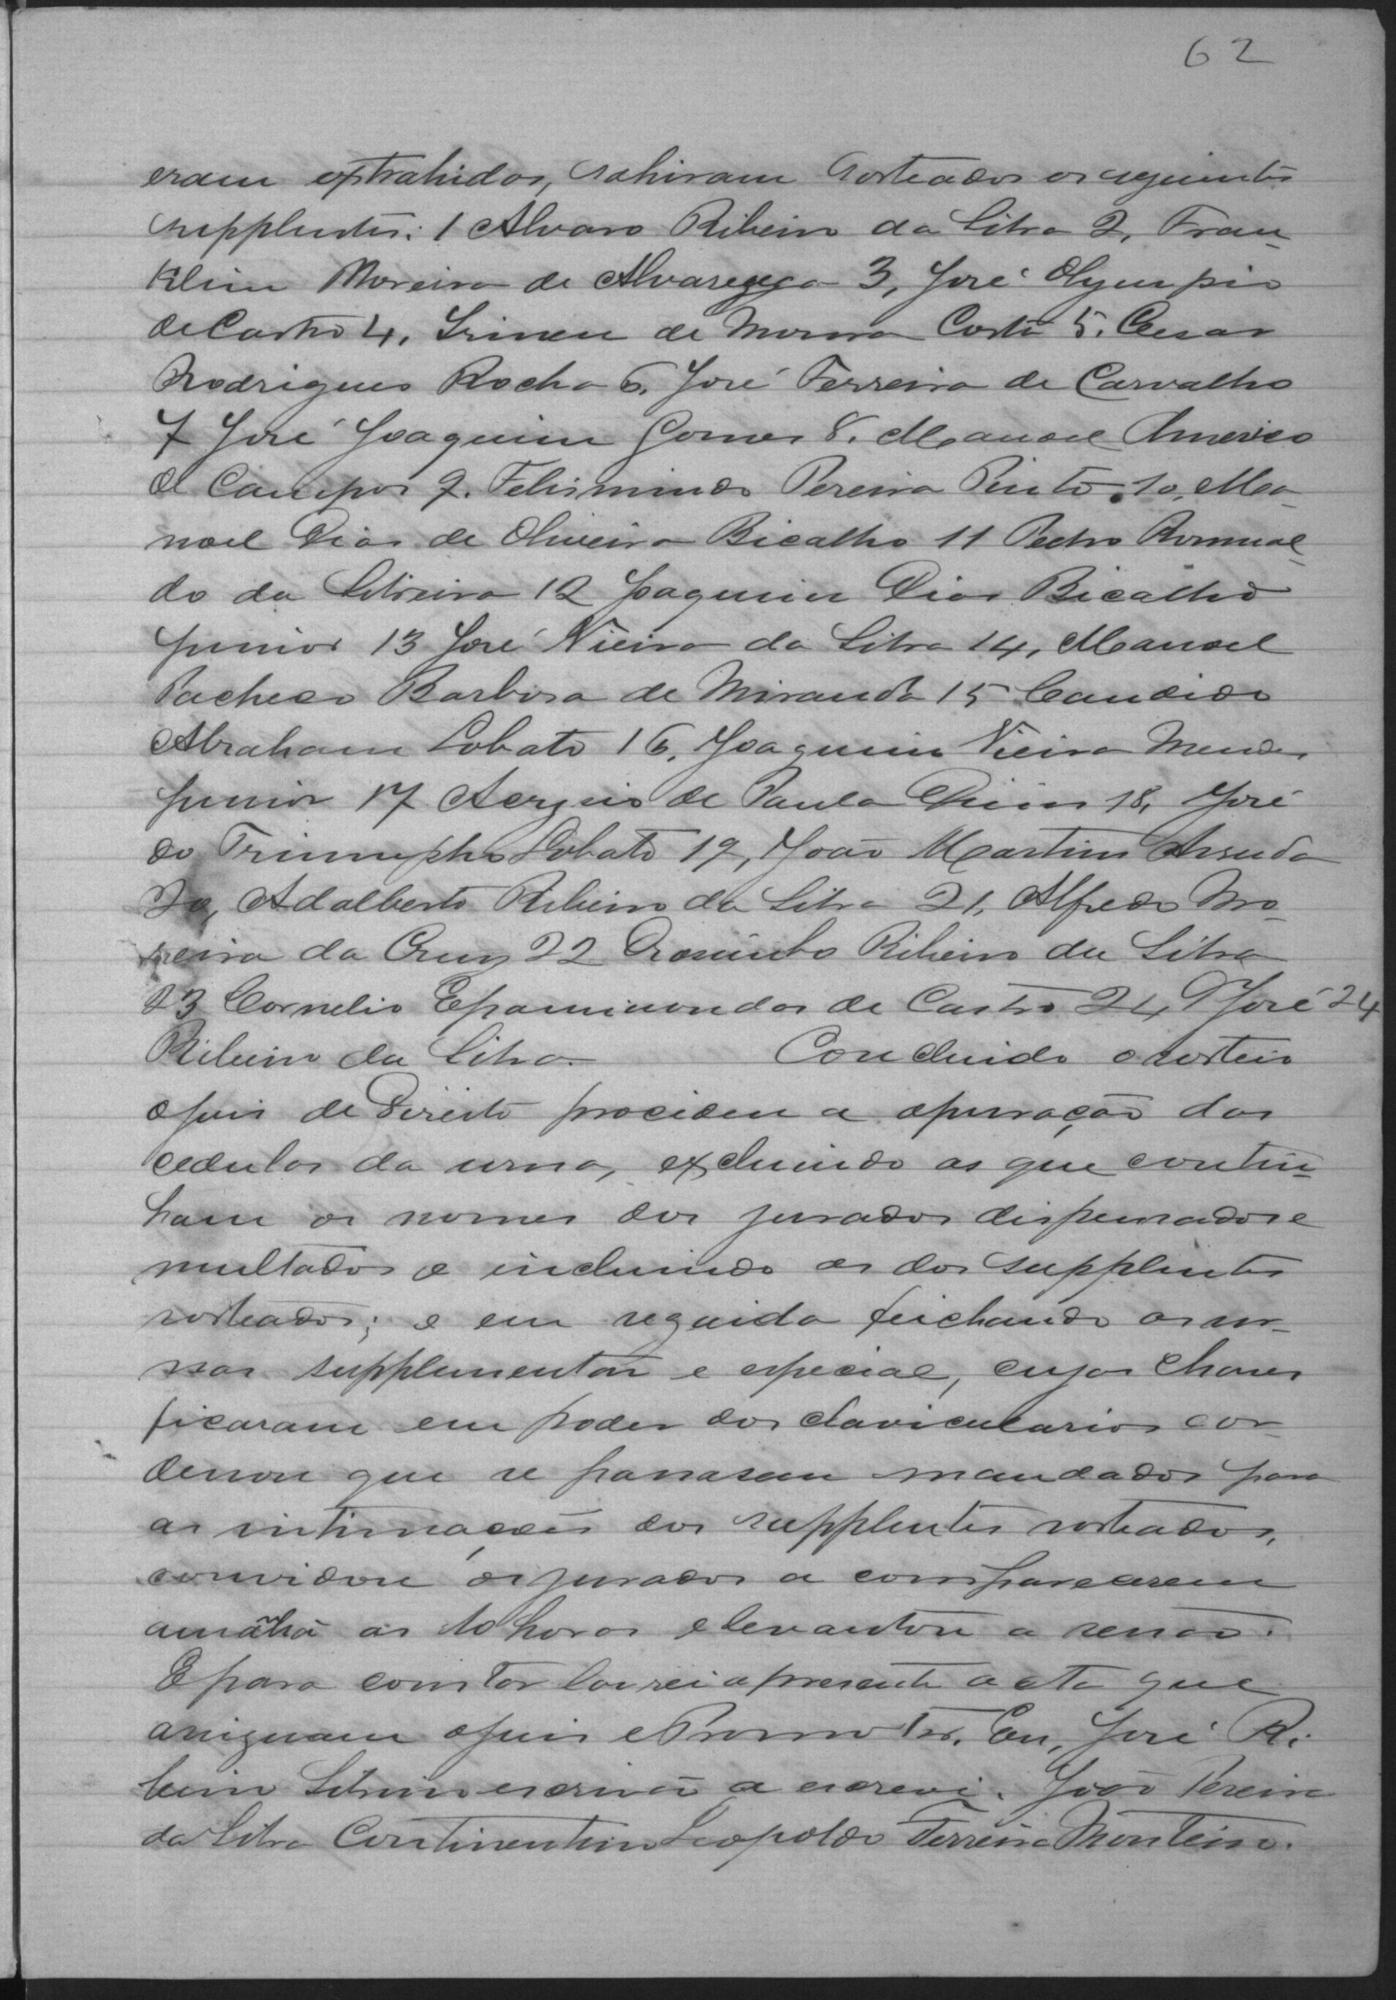 62
eram extrahidos, sahiram sorteados os seguintes
supplentes: 1 Alvaro Ribeiro da Silva 2, Fran-
klim Moreira de Alvarenga 3, José Olympio
de Castro 4, Irineu de Moura Costa 5. Cesar
Rodrigues Rocha 6. José Ferreira de Carvalho
7 José Joaquim Gomes 8. Manoel Americo
de Campos 9. Felismindo Pereira Pinto. 10, Ma-
noel Dias de Oliveira Bicalho 11 Pedro Romual-
do da Silveira 12 Joaquim Dias Bicalho
Junior 13 José Vieira da Silva 14, Manoel
Pacheco Barbosa de Miranda 15 Candido
Abraham Lobato 16, Joaquim Vieira Mendes
Junior 17 de Paula 18, José
do Triumpho Lobato 19, João Martins Arruda
20, Adalberto Ribeiro da Silva 21, Alfredo Mo-
reira da Cruz 22 Ribeiro da Silva
23 Cornelio Epaminondas de Castro 24 José 24
Ribeiro da Silva. Concluido o sorteio
o juis de Direito procedeu a apuração das
cedulas da urna, excluindo as que conti-
nham os nomes dos jurados dispensados e
multados e incluindo as dos supplentes
sorteados; e em seguida feichando as ur-
nas supplementar e especial, cujas chaves
ficaram em poder dos clavicularios or-
denou que se passasem mandados para
as intimações dos supplentes sorteados,
convidou os jurados a comparecerem
amãhã as 10 horas e levantou a sessão.
E para constar lavrei a presente acta que
assignam o juis e Promotor. Eu, José Ri-
beiro Silverio escrivão a escrevi. João Pereira
da Silva Continentino Leopoldo Ferreira Monteiro.